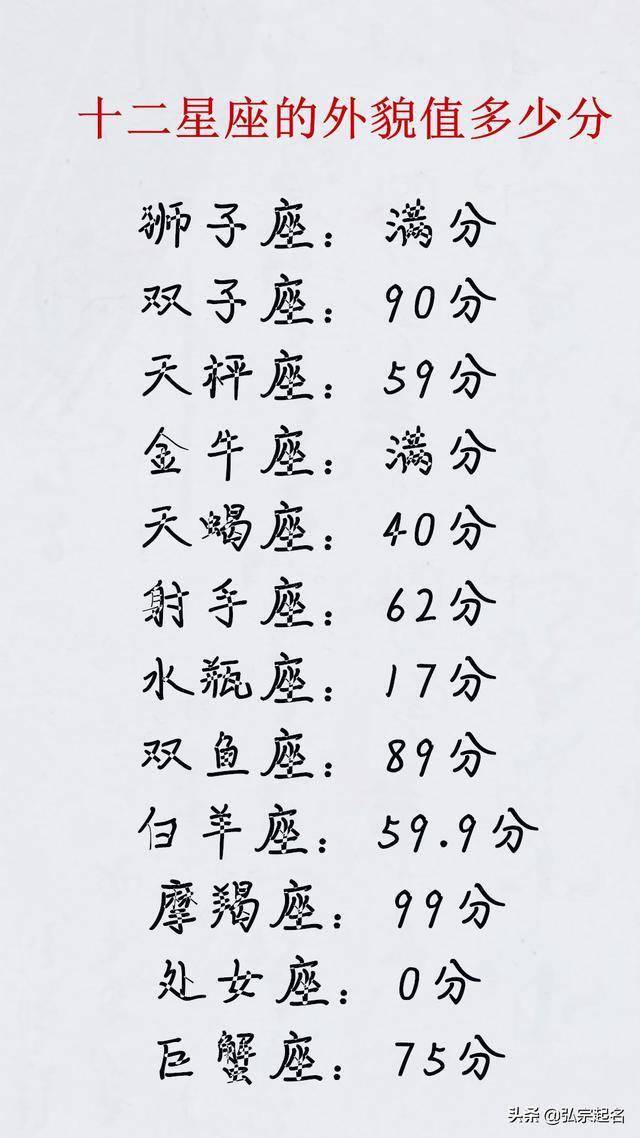 十二星座的外貌值多少分
狮子座：满分
双子座：90分
天秤座：59分
金牛座：满分
天蝎座：40分
射手座：62分
水瓶座：17分
双鱼座：89分
白羊座：59.9分
摩羯座：99分
处女座：0分
巨蟹座：75分
头条 @弘宗起名